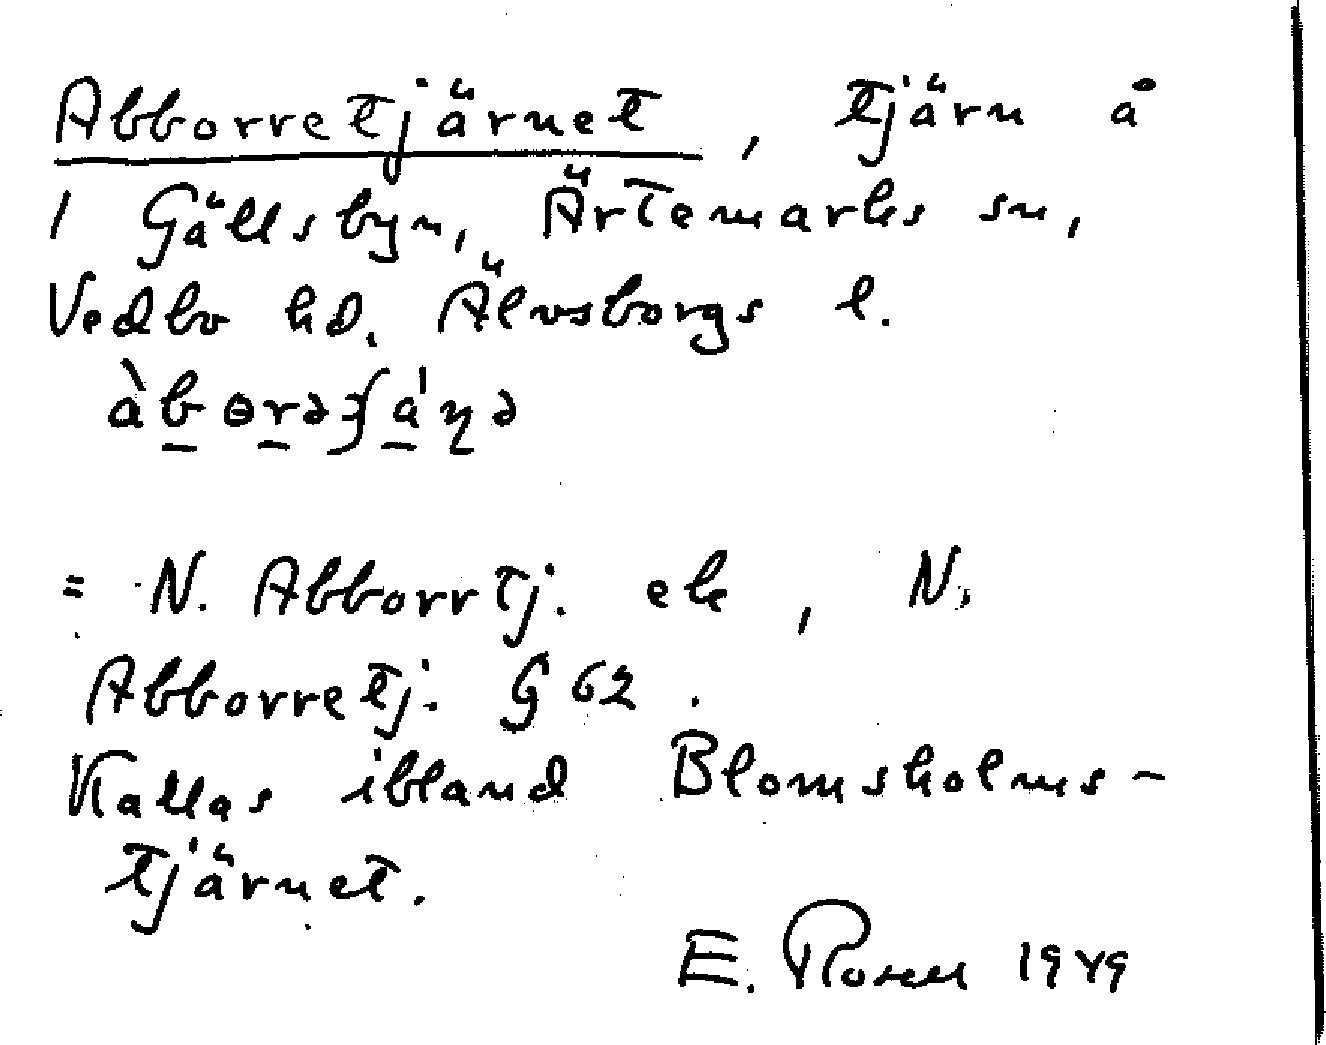 Abborretjärnet, tjärn å
1 Gällsbyn, Ärtemarks sn,
Vedbo hd. Älvsborgs l.
= N. Abborrtj. ek, N.
Abborretj. G 62.
Kallas ibland Blomsholms-
tjärnet.
E. Rosell 1949